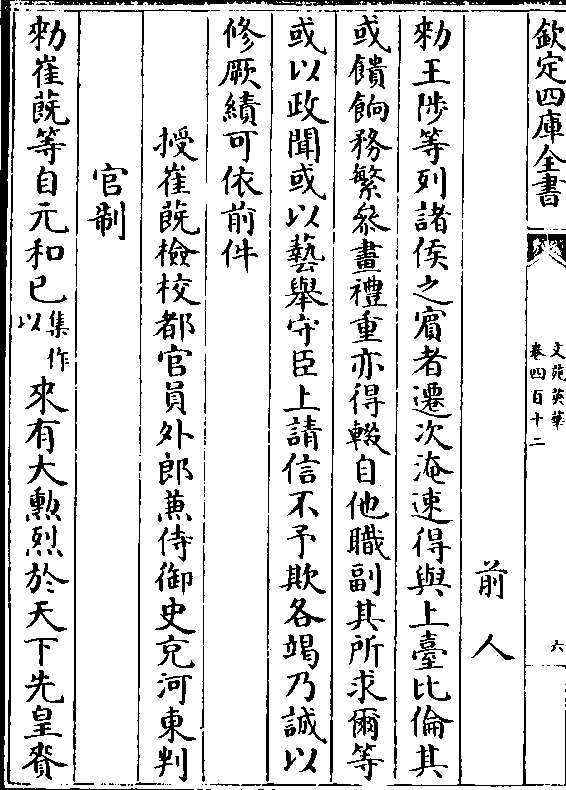 欽定四庫全書
文苑英華
卷四百十二
六
前人
勅王陟等列諸侯之賓者遷次淹速得與上臺比倫其
或饋餉務繁叅畫禮重亦得輟自他職副其所求爾等
或以政聞或以藝舉守臣上請信不予欺各竭乃誠以
修厥績可依前件
授崔蔇檢校都官員外郎兼侍御史充河東判
官制
勅崔蔇等自元和已集作以來有大勲烈於天下先皇賚